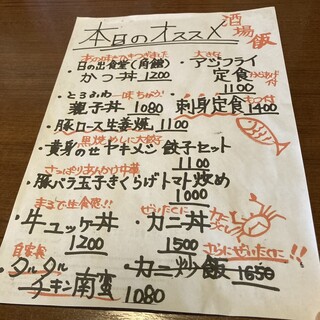 本日のオススメ
酒場飯
日の出食堂(角館)
かつ丼 1200
大きな
アジフライ
定食
1100
とろふわ 味ちがう!
親子丼 1080
刺身定食 1400
豚ロース生姜焼 1100
黒焼めしに大餃子
黄身のせヤキメシ 餃子セット
1100
さっぱりあんかけ中華
豚バラ玉子きくらげトマト炒め
1000
まるで生食感!!
牛ユッケ丼
1200
ぜいたくに
カニ丼
1500
自家製
タルタル
チキン南蛮 1080
さらにぜいたくに!!
カニ炒飯 1650